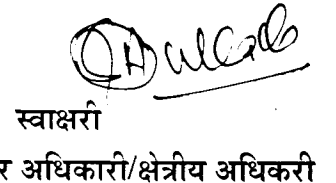 स्वाक्षरी
र अधिकारी/क्षेत्रीय अधिकरी